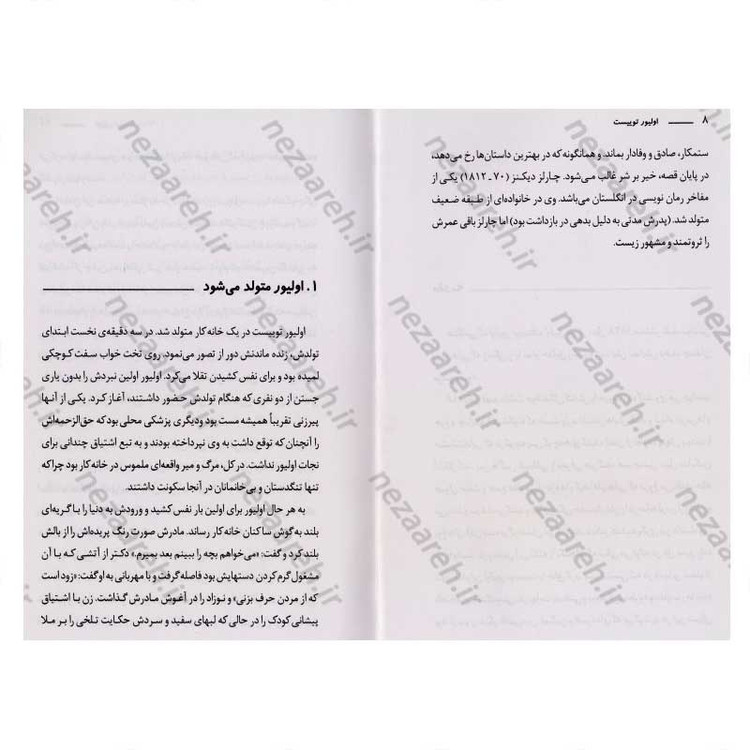 ۸ ـــــــ اولیور توییست
ستمکار، صادق و وفادار بماند. و همانگونه که در بهترین داستان‌ها رخ می‌دهد،
در پایان قصه، خیر بر شر غالب می‌شود. چارلز دیکنز (۷۰ـ۱۸۱۲) یکی از
مفاخر رمان نویسی در انگلستان می‌باشد. وی در خانواده‌ای از طبقه ضعیف
متولد شد. (پدرش مدتی به دلیل بدهی در بازداشت بود) اما چارلز باقی عمرش
را ثروتمند و مشهور زیست.
۱. اولیور متولد می‌شود
اولیور توییست در یک خانه کار متولد شد. در سه دقیقه‌ی نخست ابتدای
تولدش، زنده ماندنش دور از تصور می‌نمود. روی تخت خواب سفت کوچکی
لمیده بود و برای نفس کشیدن تقلا می‌کرد. اولیور اولین نبردش را بدون یاری
جستن از دو نفری که هنگام تولدش حضور داشتند، آغاز کرد. یکی از آنها
پیرزنی تقریباً همیشه مست بود ودیگری پزشکی محلی بود که حق‌الزحمه‌اش
را آنچنان که توقع داشت به وی نپرداخته بودند و به تبع اشتیاق چندانی برای
نجات اولیور نداشت. در کل، مرگ و میر واقعه‌ای ملموس در خانه‌کار بود چرا که
تنها تنگدستان و بی‌خانمانان در آنجا سکونت داشتند.
به هر حال اولیور برای اولین بار نفس کشید و ورودش به دنیا را با گریه‌ای
بلند به گوش ساکنان خانه کار رساند. مادرش صورت رنگ پریده‌اش را از بالش
بلند کرد و گفت: «می‌خواهم بچه را ببینم بعد بمیرم.» دکتر از آتشی که با آن
مشغول گرم کردن دستهایش بود فاصله گرفت و با مهربانی به او گفت: «زود است
که از مردن حرف بزنی» و نوزاد را در آغوش مادرش گذاشت. زن با اشتیاق
پیشانی کودک را در حالی که لبهای سفید و سردش حکایت تلخی را بر ملا
nezaareh.ir
nezaareh.ir
nezaareh.ir
nezaareh.ir
nezaareh.ir
nezaareh.ir
nezaareh.ir
nezaareh.ir
nezaareh.ir